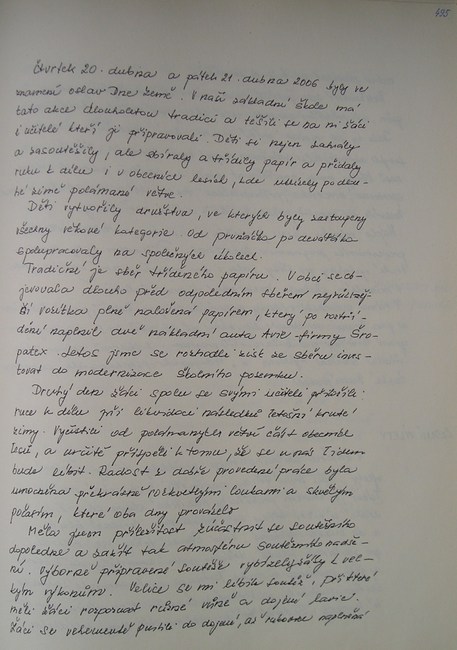 495
Čtvrtek 20. dubna a pátek 21. dubna 2006 byly ve
znamení oslav Dne Země. V naší základní škole má
tato akce dlouholetou tradici a těšili se na ni žáci
i učitelé kteří ji připravovali. Děti si nejen zahrály
a zasoutěžily, ale sbíraly a třídily papír a přidaly
ruku k dílu i v obecních lesích, kde uklízely po dlou-
hé zimě polámané větve.
Děti vytvořily družstva, ve kterých byly zastoupeny
všechny věkové kategorie. Od prvňáčka po deváťáka
spolupracovaly na společných úkolech.
Tradiční je sběr tříděného papíru. V obci se ob-
jevovala dlouho před odpoledním sběrem nejrůzněj-
ší vozítka plně naložená papírem, který po roztří-
dění naplnil dvě nákladní auta Avie firmy Šro-
patex. Letos jsme se rozhodli zisk ze sběru inves-
tovat do modernizace školního pozemku.
Druhý den žáci spolu se svými učiteli přiložili
ruce k dílu při likvidaci následků letošní kruté
zimy. Vyčistili od polámaných větví část obecních
lesů, a určitě přispěli k tomu, že se u nás lidem
bude líbit. Radost z dobře provedené práce byla
umocněna překrásně rozkvetlými loukami a skvělým
počasím, které oba dny provázelo.
Měla jsem příležitost zúčastnit se soutěžního
dopoledne a zažít tak atmosféru soutěžního nadše-
ní. Výborně připravené soutěže vybízely žáky k vel-
kým výkonům. Velice se mi líbila soutěž, při které
měli žáci rozpoznat různé vůně a dojení krávy.
Žáci se vehementně pustili do dojení, až rukavice naplněná